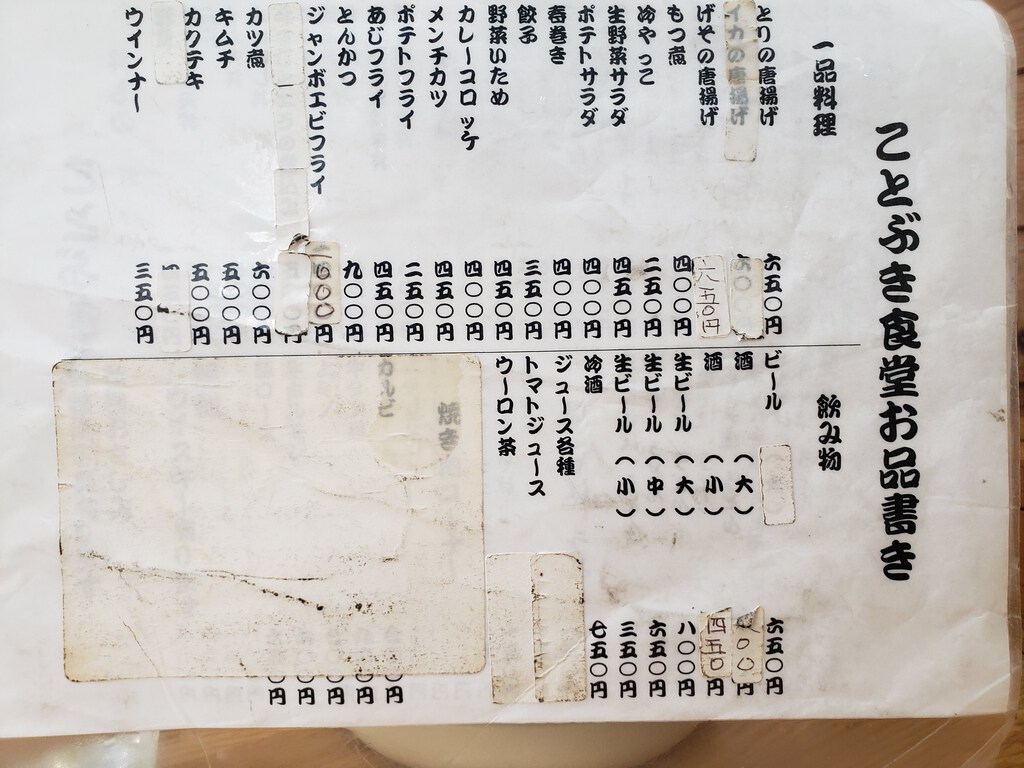 ことぶき食堂お品書き
一品料理
とりの唐揚げ 六五〇円
イカの唐揚げ
げその唐揚げ 六五〇円
もつ煮 四〇〇円
冷やっこ 二五〇円
生野菜サラダ 四五〇円
ポテトサラダ 四〇〇円
春巻き 四〇〇円
餃子 三五〇円
野菜いため 四五〇円
カレーコロッケ 四〇〇円
メンチカツ 四五〇円
ポテトフライ 二五〇円
あじフライ 四五〇円
とんかつ 九〇〇円
ジャンボエビフライ
カツ煮 六〇〇円
キムチ 五〇〇円
カクテキ 五〇〇円
ウインナー 三五〇円
飲み物
ビール 六五〇円
酒（大）
酒（小） 四五〇円
生ビール（大） 八〇〇円
生ビール（中） 六五〇円
生ビール（小） 三五〇円
冷酒 七五〇円
ジュース各種
トマトジュース
ウーロン茶
焼き
カルビ